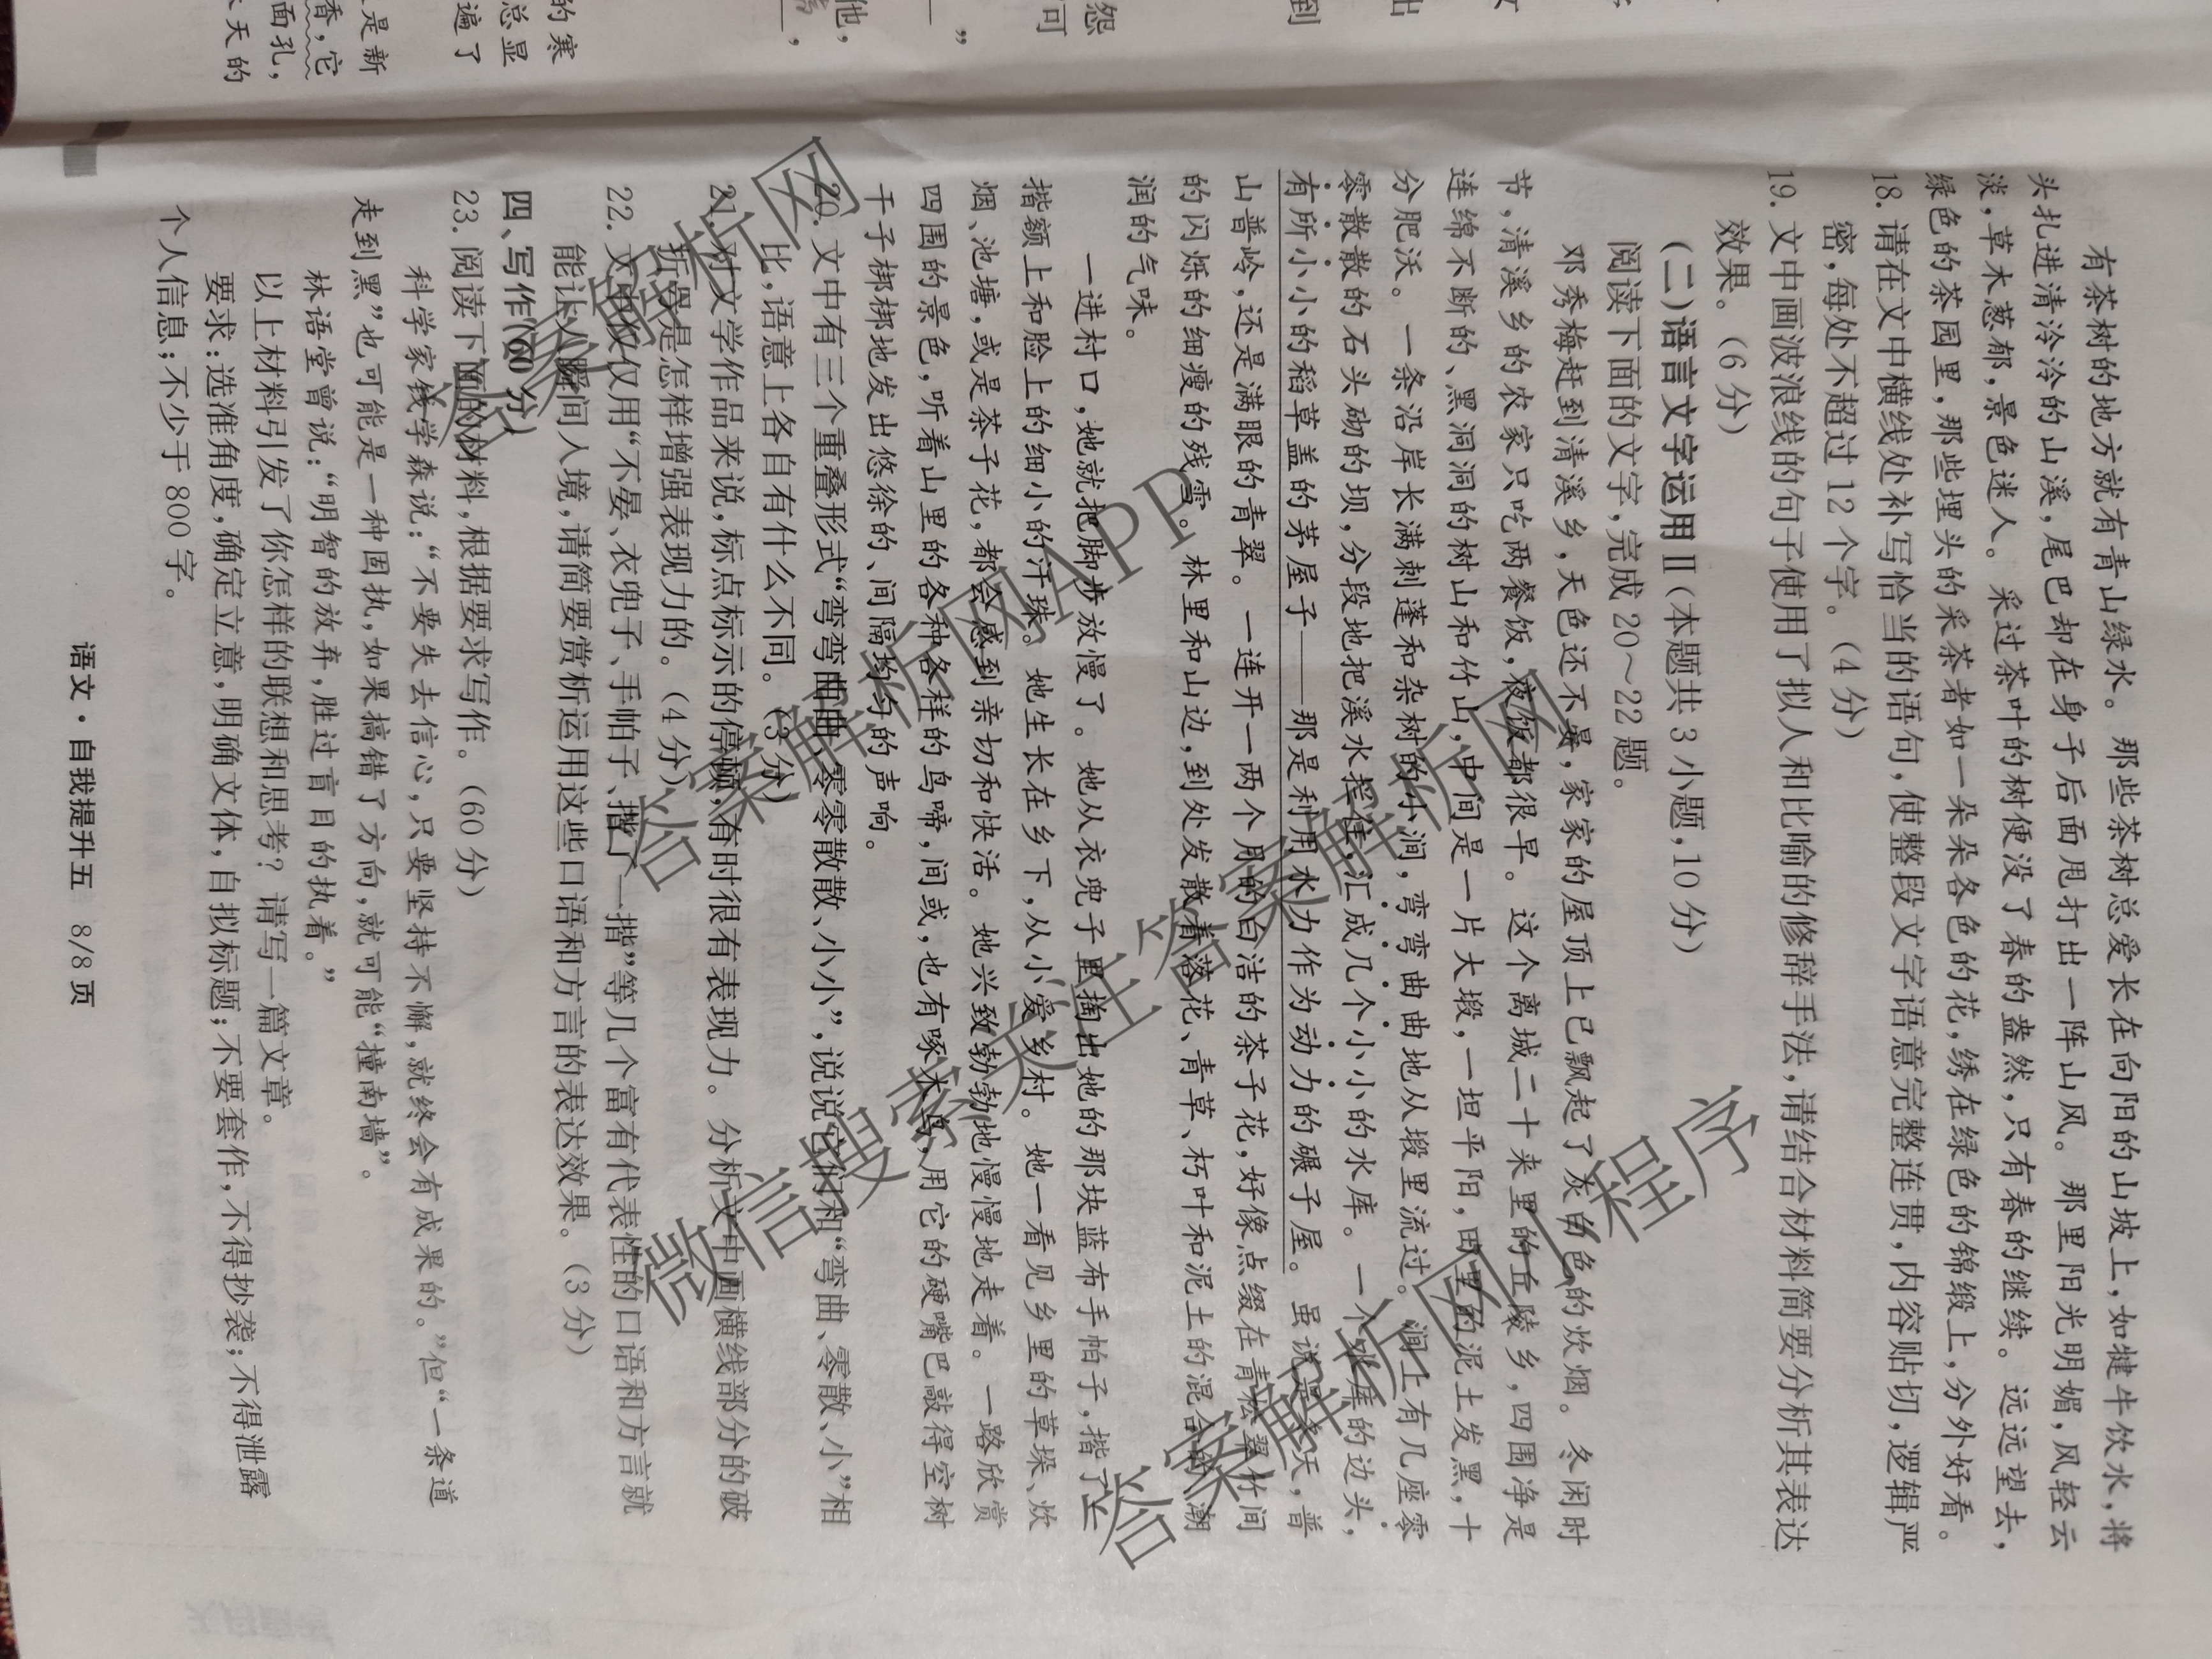 的寒
总显
遍了
是新
香，它
面孔，
天的
他，
”
可
怨
到
出
有茶树的地方就有青山绿水。那些茶树总爱长在向阳的山坡上，如犍牛饮水，将
头扎进清泠泠的山溪，尾巴却在身子后面甩打出一阵山风。那里阳光明媚，风轻云
淡，草木葱郁，景色迷人。采过茶叶的树便没了春的盎然，只有春的继续。远远望去，
绿色的茶园里，那些埋头的采茶者如一朵朵各色的花，绣在绿色的锦缎上，分外好看。
18. 请在文中横线处补写恰当的语句，使整段文字语意完整连贯，内容贴切，逻辑严
密，每处不超过12个字。（4分）
19. 文中画波浪线的句子使用了拟人和比喻的修辞手法，请结合材料简要分析其表达
效果。（6分）
（二）语言文字运用Ⅱ（本题共3小题，10分）
阅读下面的文字，完成20～22题。
邓秀梅赶到清溪乡，天色还不晏，家家的屋顶上已飘起了灰白色的炊烟。冬闲时
节，清溪乡的农家只吃两餐饭，夜饭都很早。这个离城二十来里的丘陵乡，四围净是
连绵不断的、黑洞洞的树山和竹山，中间是一片大塅，一坦平阳，田里的泥土发黑，十
分肥沃。一条沿岸长满刺蓬和杂树的小涧，弯弯曲曲地从塅里流过。涧上有几座零
零散散的石头砌的坝，分段地把溪水挥住，汇成几个小小的水库。一个水库的边头，
有所小小的稻草盖的茅屋子——那是利用水力作为动力的碾子屋。虽说是冬天，普
山普岭，还是满眼的青翠。一连开一两个月的白洁的茶子花，好像点缀在青松翠竹间
的闪烁的细瘦的残雪。林里和山边，到处发散着落花、青草、朽叶和泥土的混合的、潮
润的气味。
一进村口，她就把脚步放慢了。她从衣兜子里掏出她的那块蓝布手帕子，揩了
揩额上和脸上的细小的汗珠。她生长在乡下，从小爱乡村。她一看见乡里的草垛、炊
烟、池塘，或是茶子花，都会感到亲切和快活。她兴致勃勃地慢慢地走着。一路欣赏
四围的景色，听着山里的各种各样的鸟啼，间或，也有啄木鸟，用它的硬嘴巴敲得空树
干子梆梆地发出悠徐的、间隔均匀的声响。
20. 文中有三个重叠形式“弯弯曲曲、零零散散、小小”，说说它们和“弯曲、零散、小”相
比，语意上各自有什么不同。（3分）
21. 对文学作品来说，标点标示的停顿，有时很有表现力。分析文中画横线部分的破
折号是怎样增强表现力的。（4分）
22. 文中仅仅用“不晏、衣兜子、手帕子、揩了一揩”等几个富有代表性的口语和方言就
能让人瞬间入境，请简要赏析运用这些口语和方言的表达效果。（3分）
四、写作（60分）
23. 阅读下面的材料，根据要求写作。（60分）
科学家钱学森说：“不要失去信心，只要坚持不懈，就终会有成果的。”但“一条道
走到黑”也可能是一种固执，如果搞错了方向，就可能“撞南墙”。
林语堂曾说：“明智的放弃，胜过盲目的执着。”
以上材料引发了你怎样的联想和思考？请写一篇文章。
要求：选准角度，确定立意，明确文体，自拟标题；不要套作，不得抄袭；不得泄露
个人信息；不少于800字。
语文·自我提升五 8/8页